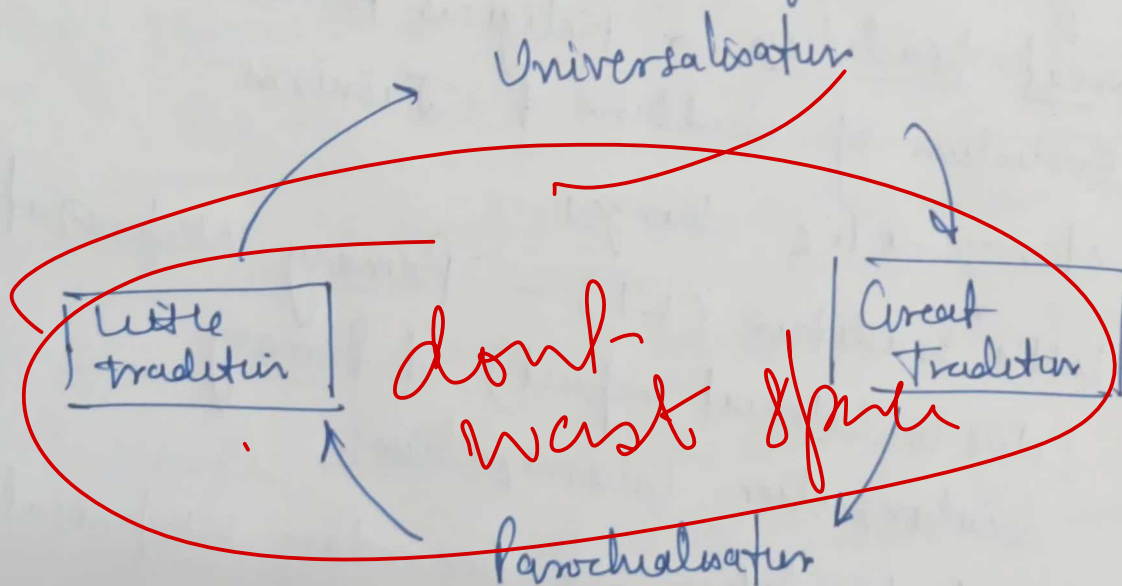 Universalisation
Little
tradition
Great
Tradition
dont
wast space
Parochialisation